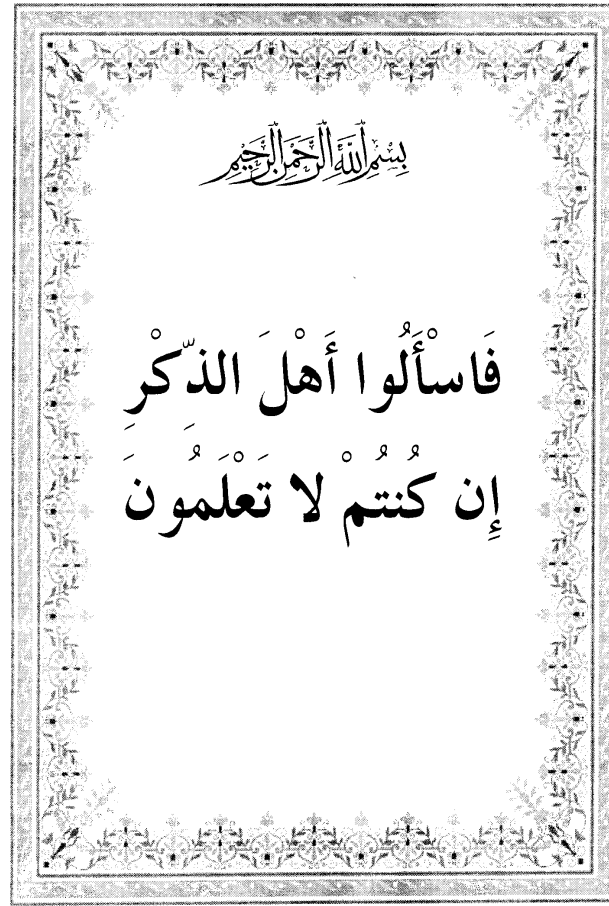 بِسْمِ اللَّهِ الرَّحْمَنِ الرَّحِيمِ
فَاسْأَلُوا أَهْلَ الذِّكْرِ
إِن كُنتُمْ لا تَعْلَمُونَ